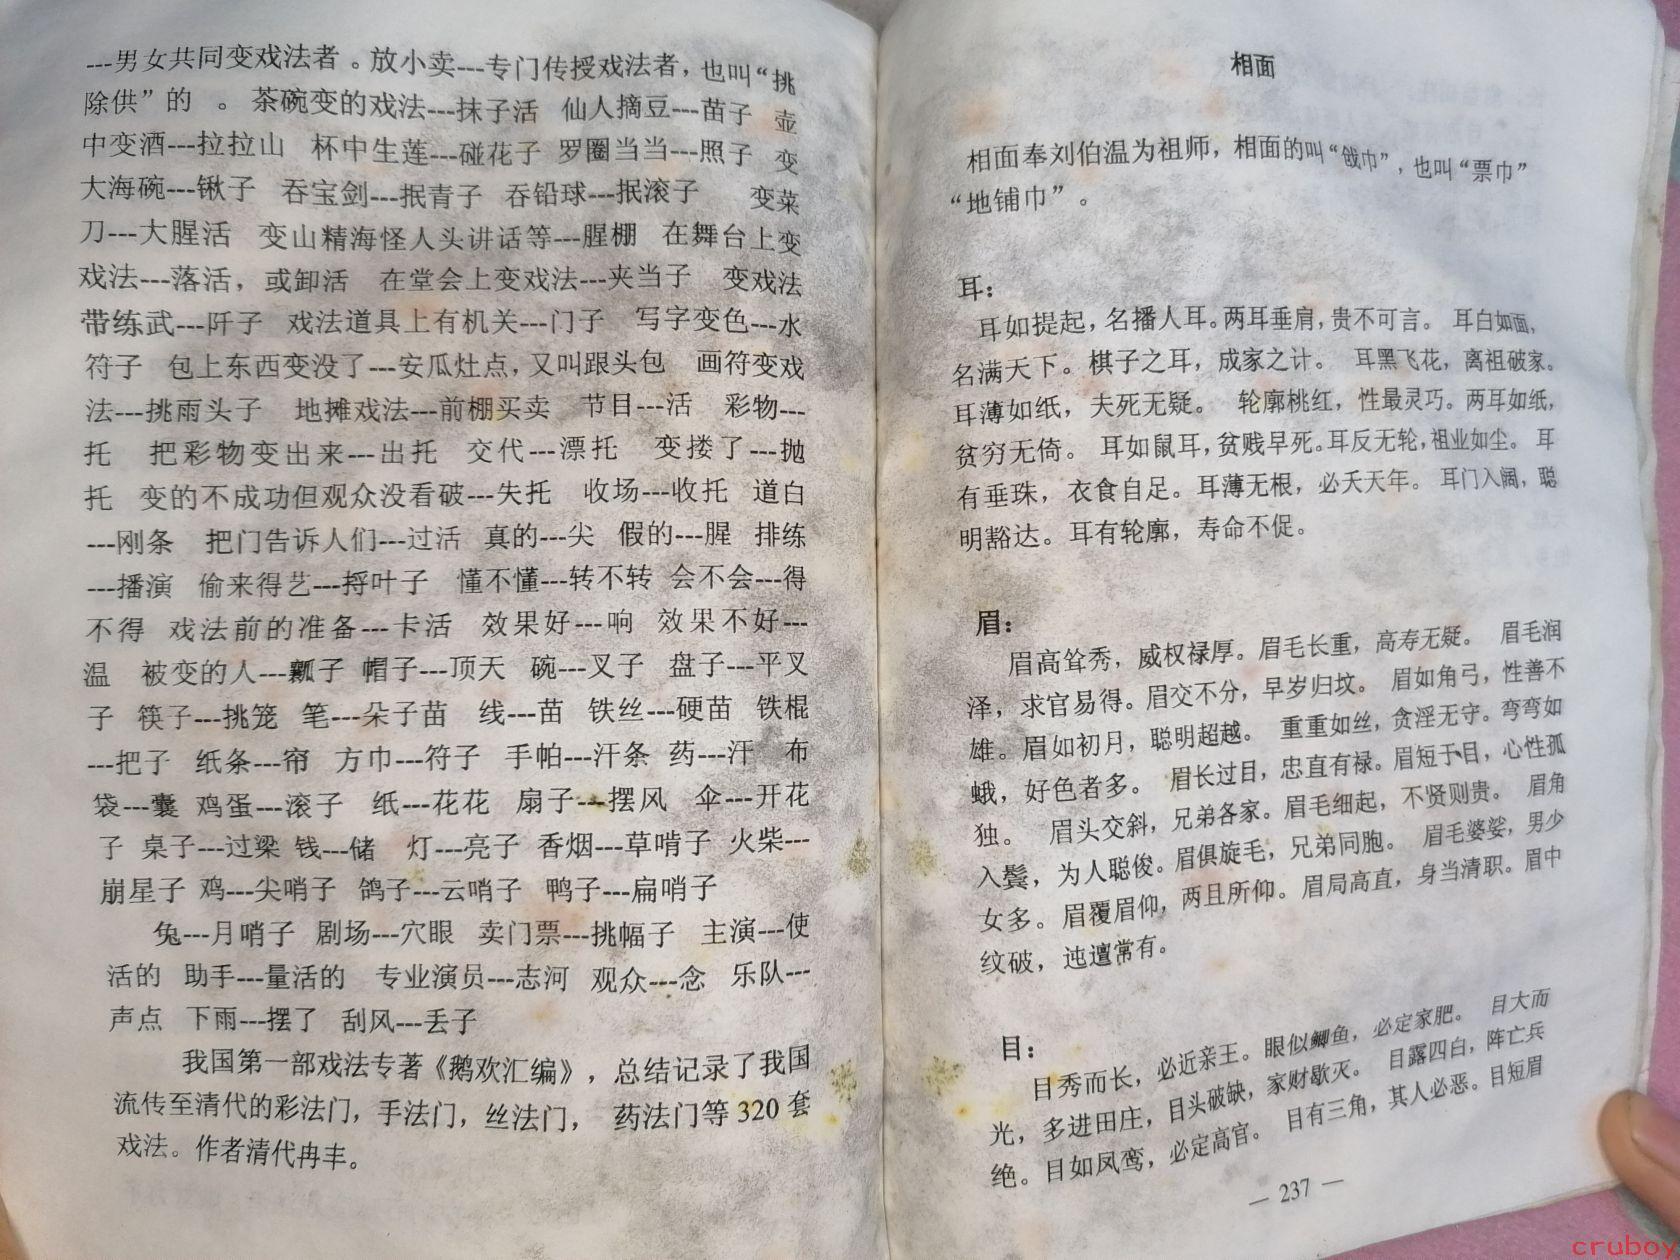 ---男女共同变戏法者。放小卖---专门传授戏法者，也叫“挑
除供”的 。 茶碗变的戏法---抹子活 仙人摘豆---苗子 壶
中变酒---拉拉山 杯中生莲---碰花子 罗圈当当---照子 变
大海碗---锹子 吞宝剑---抿青子 吞铅球---抿滚子 变菜
刀---大腥活 变山精海怪人头讲话等---腥棚 在舞台上变
戏法---落活，或卸活 在堂会上变戏法---夹当子 变戏法
带练武---阡子 戏法道具上有机关---门子 写字变色---水
符子 包上东西变没了---安瓜灶点，又叫跟头包 画符变戏
法---挑雨头子 地摊戏法---前棚买卖 节目---活 彩物---
托 把彩物变出来---出托 交代---漂托 变搂了---抛
托 变的不成功但观众没看破---失托 收场---收托 道白
---刚条 把门告诉人们---过活 真的---尖 假的---腥 排练
---播演 偷来得艺---捋叶子 懂不懂---转不转 会不会---得
不得 戏法前的准备---卡活 效果好---响 效果不好---
温 被变的人---瓤子 帽子---顶天 碗---叉子 盘子---平叉
子 筷子---挑笼 笔---朵子苗 线---苗 铁丝---硬苗 铁棍
---把子 纸条---帘 方巾---符子 手帕---汗条 药---汗 布
袋---囊 鸡蛋---滚子 纸---花花 扇子---摆风 伞---开花
子 桌子---过梁 钱---储 灯---亮子 香烟---草啃子 火柴---
崩星子 鸡---尖哨子 鸽子---云哨子 鸭子---扁哨子
兔---月哨子 剧场---穴眼 卖门票---挑幅子 主演---使
活的 助手---量活的 专业演员---志河 观众---念 乐队---
声点 下雨---摆了 刮风---丢子
我国第一部戏法专著《鹅欢汇编》，总结记录了我国
流传至清代的彩法门，手法门，丝法门， 药法门等 320 套
戏法。作者清代冉丰。
相面
相面奉刘伯温为祖师，相面的叫“戗巾”，也叫“票巾”
“地铺巾”。
耳：
耳如提起，名播人耳。两耳垂肩，贵不可言。 耳白如面，
名满天下。棋子之耳，成家之计。 耳黑飞花，离祖破家。
耳薄如纸，夫死无疑。 轮廓桃红，性最灵巧。两耳如纸，
贫穷无倚。 耳如鼠耳，贫贱早死。耳反无轮，祖业如尘。 耳
有垂珠，衣食自足。耳薄无根，必夭天年。 耳门入阔，聪
明豁达。耳有轮廓，寿命不促。
眉：
眉高耸秀，威权禄厚。眉毛长重，高寿无疑。 眉毛润
泽，求官易得。眉交不分，早岁归坟。 眉如角弓，性善不
雄。眉如初月，聪明超越。 重重如丝，贪淫无守。弯弯如
蛾，好色者多。 眉长过目，忠直有禄。眉短于目，心性孤
独。 眉头交斜，兄弟各家。眉毛细起，不贤则贵。 眉角
入鬓，为人聪俊。眉俱旋毛，兄弟同胞。 眉毛婆娑，男少
女多。眉覆眉仰，两且所仰。眉局高直，身当清职。眉中
纹破，迍邅常有。
目：
目秀而长，必近亲王。眼似鲫鱼，必定家肥。 目大而
光，多进田庄，目头破缺，家财歇灭。 目露四白，阵亡兵
绝。目如凤鸾，必定高官。 目有三角，其人必恶。目短眉
— 237 —
cruboy